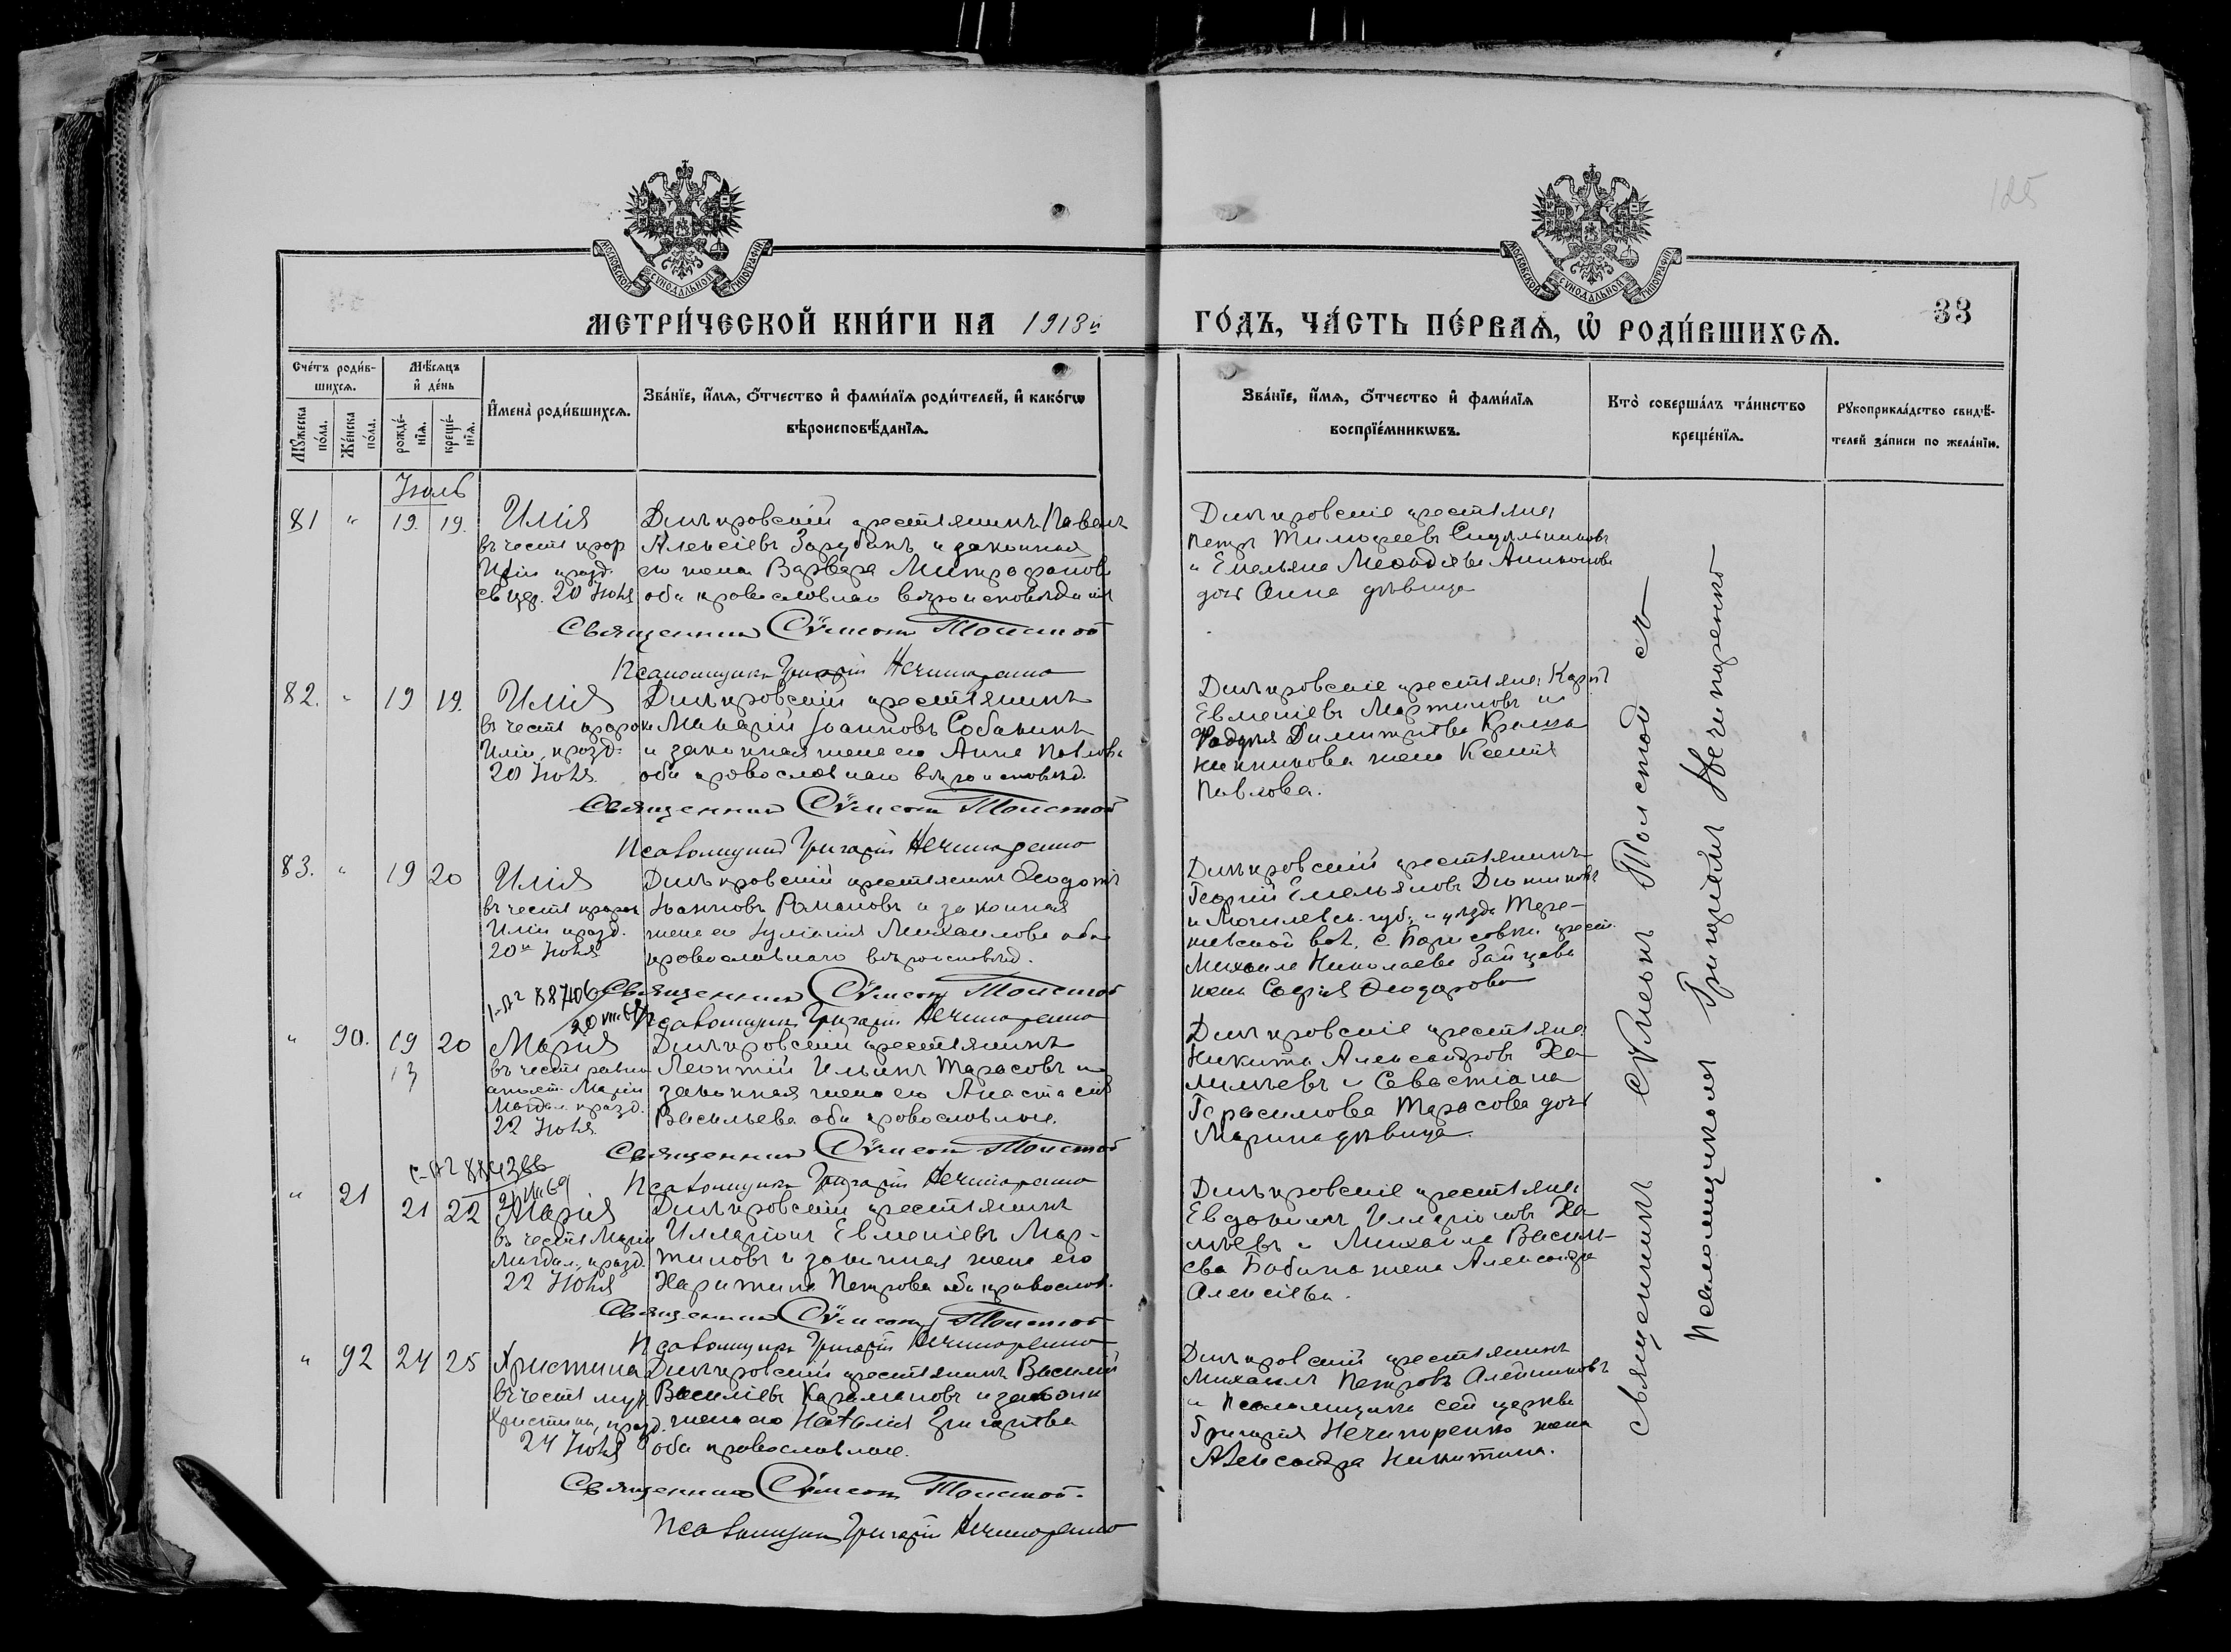 125
МОСКОВСКОЙ СѴНОДАЛЬНОЙ ТИПОГРАФІИ
МОСКОВСКОЙ СѴНОДАЛЬНОЙ ТИПОГРАФІИ
МЕТРИ́ЧЕСКОЙ КНИ́ГИ НА 1913й
ГО́ДЪ, ЧА́СТЬ ПЕ́РВАѦ, Ѡ РОДИ́ВШИХСѦ.
33
Сче́тъ роди́в-
шихсѧ.
Мꙋ́жеска по́ла.
Же́нска по́ла.
Мѣ́сѧцъ
и де́нь
рожде́-
нїѧ.
креще́-
нїѧ.
Имена̀ роди́вшихсѧ.
Зва́нїе, и́мѧ, ѻ́тчество и фами́лїѧ роди́телей, и како́гѡ
вѣроисповѣ́данїѧ.
Зва́нїе, и́мѧ, ѻ́тчество и фами́лїѧ
воспрїе́мникѡвъ.
Кто̀ соверша́лъ та́инство
креще́нїѧ.
Рꙋкоприкла́дство свидѣ́-
телей за́писи по жела́нїю.
Іюль
81 " 19. 19. Илія
въ честь прор
Иліи празд.
св цер. 20 Іюля
Днѣпровскій крестьянинъ Павелъ
Алексіевъ Зарубинъ и законная
его жена Варвара Митрофанова
оба православнаго вѣроисповѣданія
Священникъ Сѵмеонъ Толстой
Псаломщикъ Григорій Нечипоренко
Днѣпровскіе крестьяне
Петръ Тимофеевъ
и Емельяна
дочь Анна дѣвица
82. " 19 19. Илія
въ честь пророка
Иліи празд.
20 Іюля
Днѣпровскій крестьянинъ
Макарій Іоанновъ Собакинъ
и законная жена его Анна Павлова
оба православнаго вѣроисповѣд.
Священникъ Сѵмеонъ Толстой
Псаломщикъ Григорій Нечипоренко
Днѣпровскіе крестьяне Карпъ
Евменіевъ Мартиновъ и
Димитріева
жена Ксенія
Павлова.
83. " 19 20 Илія
въ честь прор
Иліи празд.
20го Іюля
Днѣпровскій крестьянинъ Ѳеодотъ
Іоанновъ Романовъ и законная
жена его Іуліанія Михаилова оба
православнаго вѣроисповѣд.
Священникъ Сѵмеонъ Толстой
Псаломщикъ Григорій Нечипоренко
Днѣпровскій крестьянинъ
Георгій Емельяновъ
и Могилевск. губ. и уѣзда Тере-
вол. с. Борисовки крест.
Михаила Николаева Зайцева
жена Софія Ѳеодорова
" 90. 19 20 Марія
13
въ честь равно
апост. Маріи
Магдал. празд.
22 Іюля
Днѣпровскій крестьянинъ
Леонтій Ильинъ Тарасовъ и
законная жена его Анастасія
Васильева оба православные.
Священникъ Сѵмеонъ Толстой
Псаломщикъ Григорій Нечипоренко
Днѣпровскіе крестьяне
Никита Александровъ
и Севастіана
Герасимова Тарасова дочь
Марина дѣвица.
" 21 21 22 Марія
въ честь Маріи
Магдал. празд.
22 Іюля
Днѣпровскій крестьянинъ
Илларіонъ Евменіевъ Мар-
тиновъ и законная жена его
Харитина Петрова оба православ.
Священникъ Сѵмеонъ Толстой
Псаломщикъ Григорій Нечипоренко
Днѣпровскіе крестьяне
Евдокимъ Илларіоновъ
и Михаила Василь-
ева Бабина жена Александра
Алексіева.
" 92 24 25 Христина
въ честь муч
Христины, празд.
24 Іюля
Днѣпровскій крестьянинъ Василій
Василіевъ Карамановъ и законн
жена его Наталія Григоріева
оба православные.
Священникъ Сѵмеонъ Толстой.
Псаломщикъ Григорій Нечипоренко
Днѣпровскій крестьянинъ
Михаилъ Петровъ Алейниковъ
и Псаломщика сей церкви
Григорія Нечипоренко жена
Александра Никитина.
Священникъ Сѵмеонъ Толстой съ
Псаломщикомъ Григоріемъ Нечипоренко